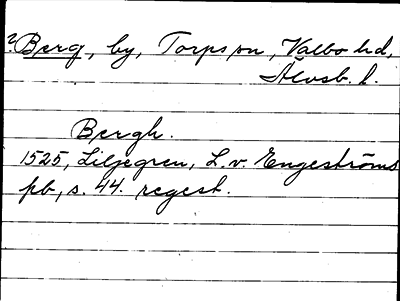 ? Berg, by, Torps sn, Valbo hd,
Älvsb. l.
Bergh.
1525, Liljegren, L. v. Engeströms
pb, s. 44. regest.